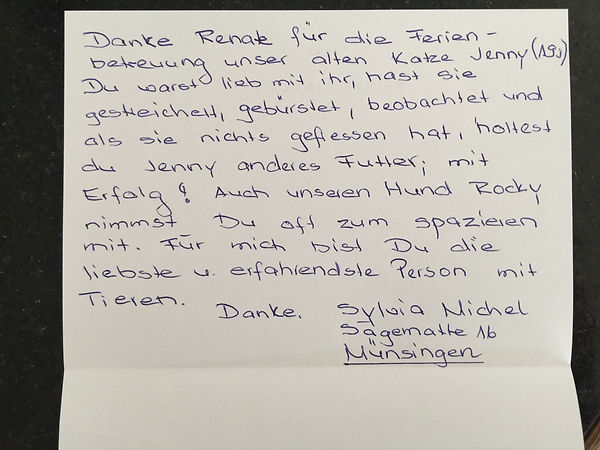 Danke Renate für die Ferien-
betreuung unser alten Katze Jenny (19j)
Du warst lieb mit ihr, hast sie
gestreichelt, gebürstet, beobachtet und
als sie nichts gefressen hat, holtest
du Jenny anderes Futter; mit
Erfolg! Auch unseren Hund Rocky
nimmst Du oft zum spazieren
mit. Für mich bist Du die
liebste u. erfahrendste Person mit
Tieren.
Danke. Sylvia Michel
Sägematte 16
Münsingen